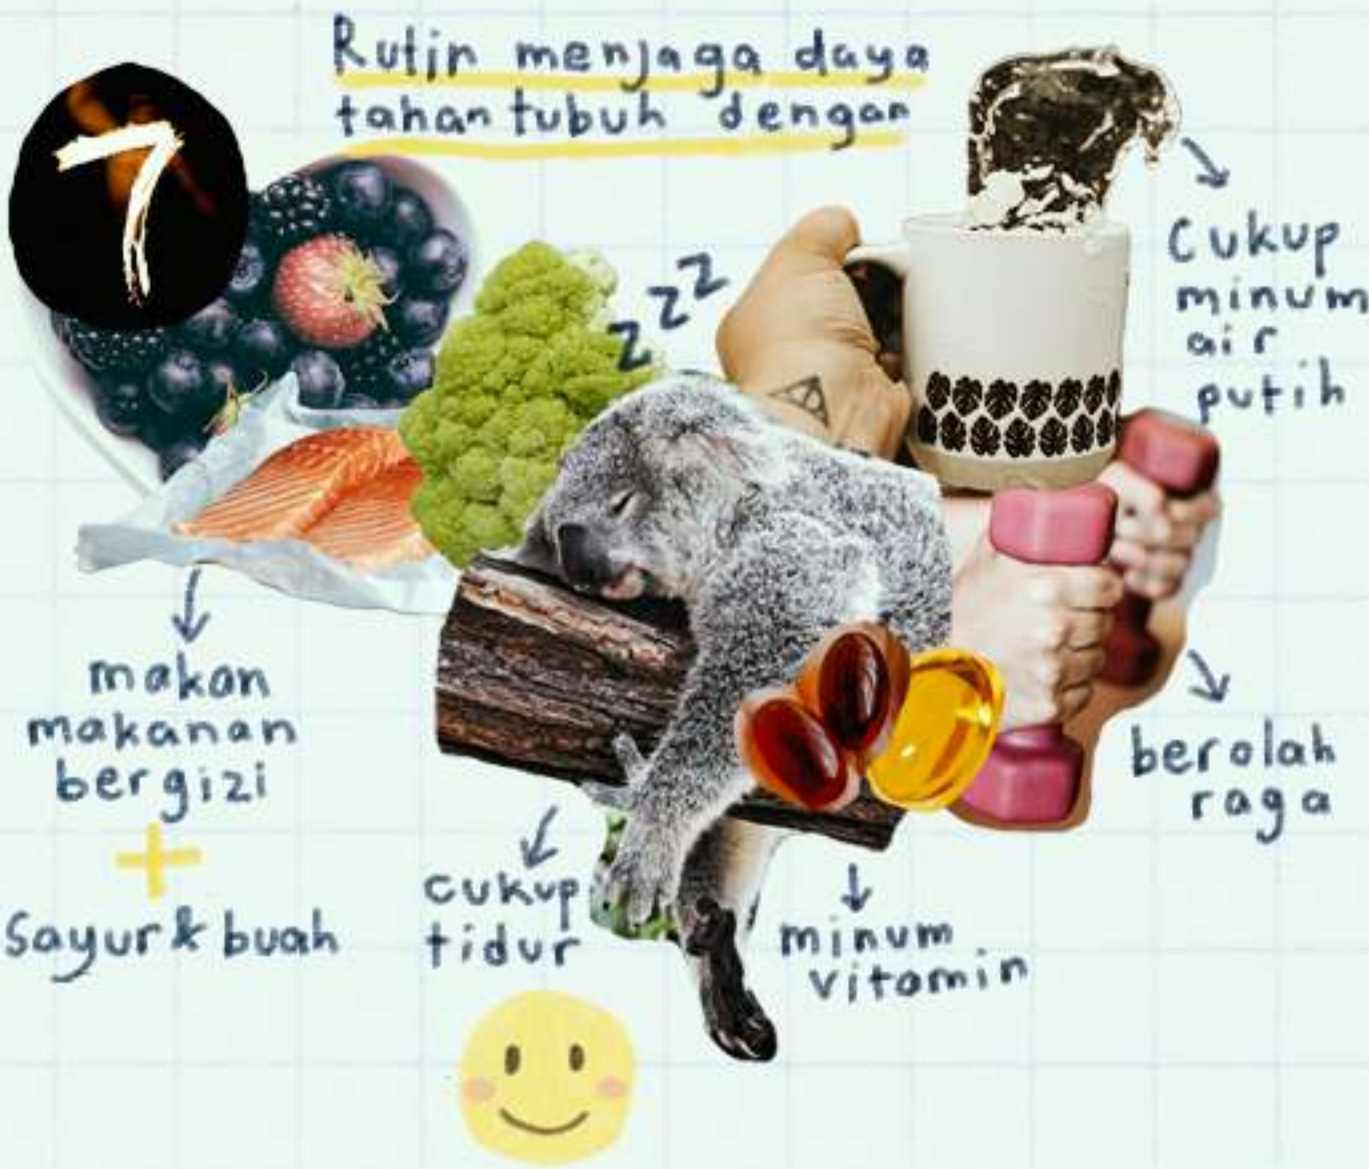 7
Rutin menjaga daya
tahan tubuh dengan
zzz
Cukup
minum
air
putih
makan
makanan
bergizi
+
Sayur & buah
cukup
tidur
minum
vitamin
berolah
raga